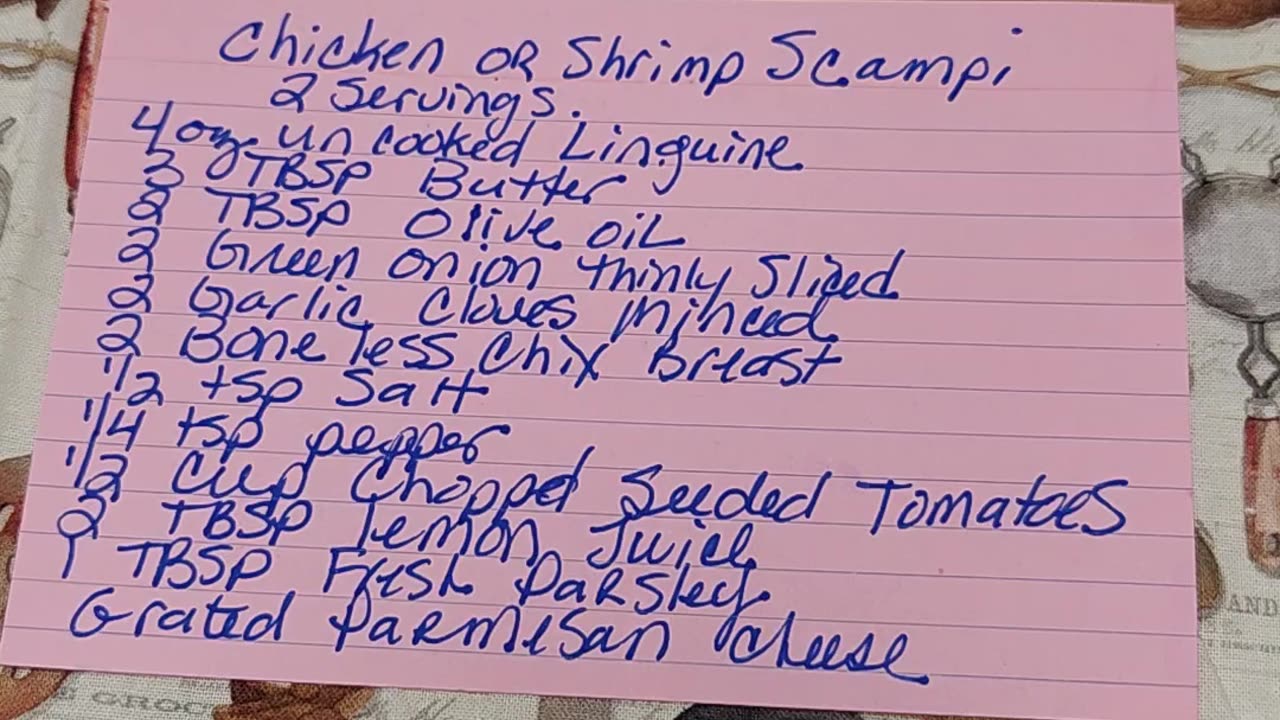 Chicken OR Shrimp Scampi
2 Servings.
4 oz. uncooked Linguine
3 TBSP Butter
2 TBSP Olive oil
2 Green onion thinly Sliced
2 Garlic Cloves Minced
2 Boneless Chix Breast
1/2 tsp Salt
1/4 tsp pepper
1/2 Cup Chopped Seeded Tomatoes
2 TBSP lemon Juice
1 TBSP Fresh Parsley
Grated Parmesan Cheese
AND
GROC